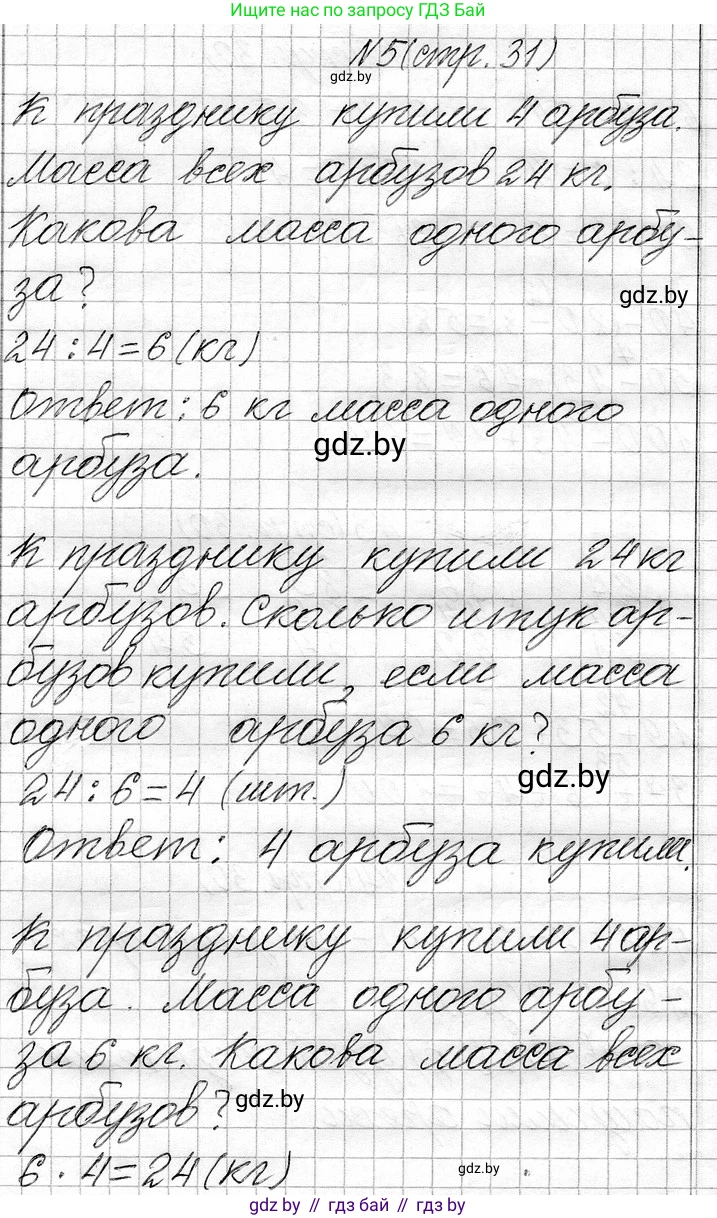 Ищите нас по запросу ГДЗ Бай
N5(стр. 31)
gdz.by
К празднику купили 4 арбуза.
Масса всех арбузов 24 кг.
Какова масса одного арбу-
за?
gdz.by
24 : 4 = 6 (кг)
Ответ: 6 кг масса одного
gdz.by
арбуза.
К празднику купили 24 кг
арбузов. Сколько штук ар-
бузов купили, если масса
одного арбуза 6 кг?
gdz.by
24 : 6 = 4 (шт.)
Ответ: 4 арбуза купили.
К празднику купили 4 ар-
буза. Масса одного арбу-
за 6 кг. Какова масса всех
арбузов?
gdz.by
6 · 4 = 24 (кг)
gdz.by
gdz.by // гдз бай // gdz.by